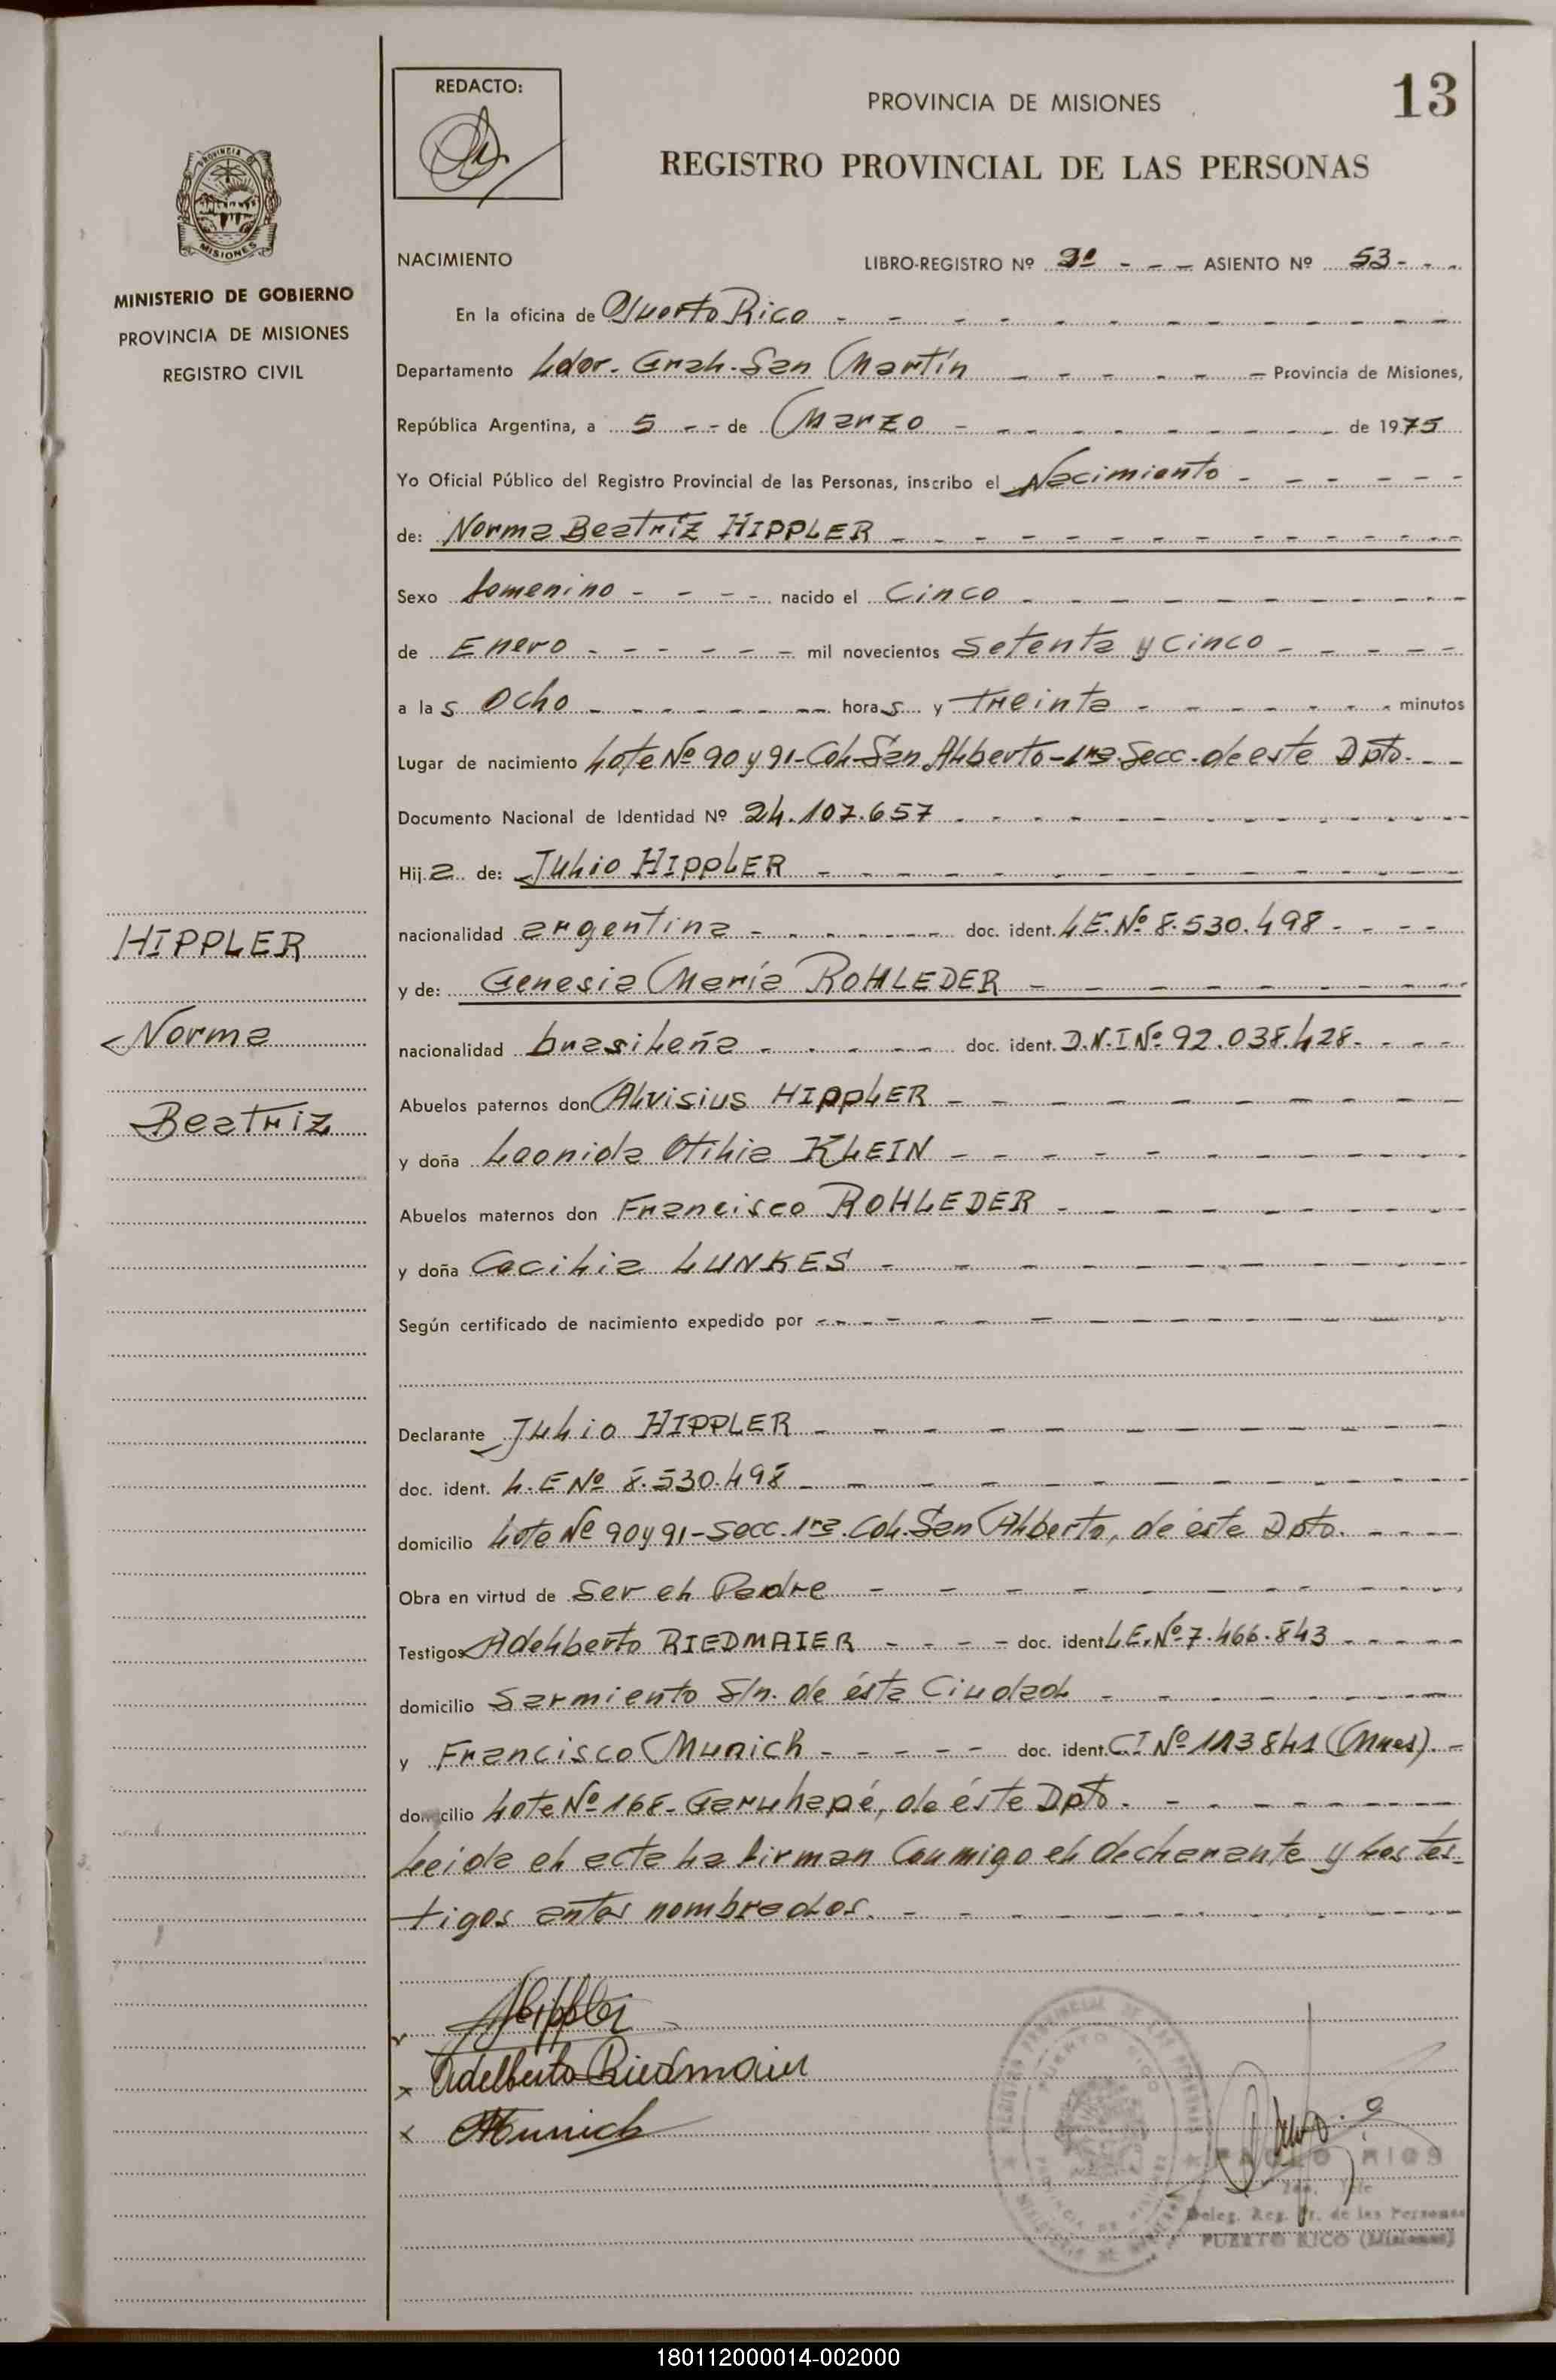 REDACTO:
PROVINCIA DE MISIONES
13
REGISTRO PROVINCIAL DE LAS PERSONAS
PROVINCIA DE
MISIONES
MINISTERIO DE GOBIERNO
PROVINCIA DE MISIONES
REGISTRO CIVIL
NACIMIENTO
LIBRO-REGISTRO Nº 2º - - - ASIENTO Nº 53 - - -
En la oficina de Puerto Rico
Departamento Ldor. Gral. San Martín Provincia de Misiones,
República Argentina, a 5 - - de Marzo de 1975
Yo Oficial Público del Registro Provincial de las Personas, inscribo el Nacimiento
de: Norma Beatriz HIPPLER
Sexo femenino - - - - nacido el Cinco
de Enero - - - - - - mil novecientos Setenta y Cinco
a las Ocho horas y Treinta minutos
Lugar de nacimiento Lote Nº 90 y 91-Col-San Alberto-1ra. Secc. de este Dpto.
Documento Nacional de Identidad Nº 24.107.657
Hija de: Julio HIPPLER
nacionalidad argentina doc. ident. L.E. Nº 8.530.498
y de: Genesia María ROHLEDER
nacionalidad brasileña doc. ident. D.N.I Nº 92.038.428
Abuelos paternos don Alvisius HIPPLER
y doña Leonida Otilia KLEIN
Abuelos maternos don Francisco ROHLEDER
y doña Cecilia LUNKES
Según certificado de nacimiento expedido por
Declarante Julio HIPPLER
doc. ident. L.E Nº 8.530.498
domicilio Lote Nº 90 y 91-Secc. 1ra. Col. San Alberto, de éste Dpto.
Obra en virtud de Ser el Padre
Testigos Adelberto RIEDMAIER doc. ident. L.E. Nº 7.466.843
domicilio Sarmiento S/n. de ésta Ciudad
y Francisco Munich doc. ident. C.I Nº 113841 (Mnes).
domicilio Lote Nº 168-Garuhapé, de éste Dpto.
Leida el acta la firman Conmigo el declarante y los tes-
tigos antes nombrados.
HIPPLER
Norma
Beatriz
JHippler
x Adelberto Riedmaier
x FMunich
REGISTRO PROVINCIAL DE LAS PERSONAS
PUERTO RICO
RIOS
Deleg. Reg. Pr. de las Personas
PUERTO RICO (Misiones)
180112000014-002000